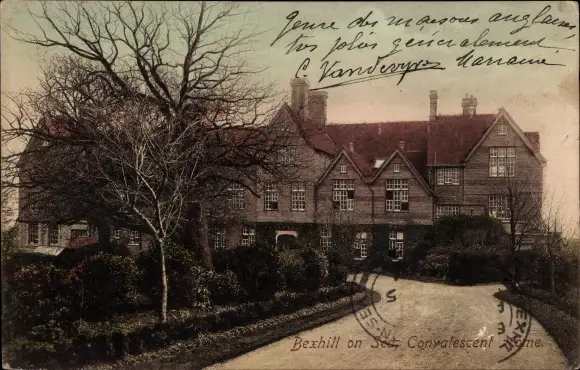 Genre des maisons anglaises,
très jolis généralement
C Vandevyvre Marraine
Bexhill on Sea, Convalescent Home.
BEXHILL
N-SEA
5